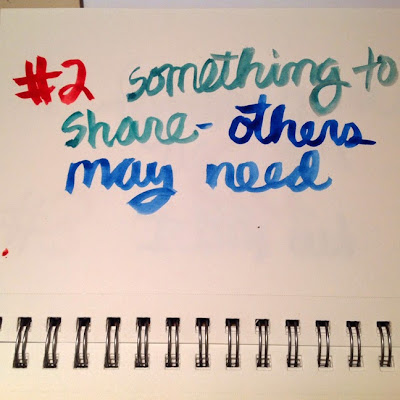 #2 something to
share - others
may need